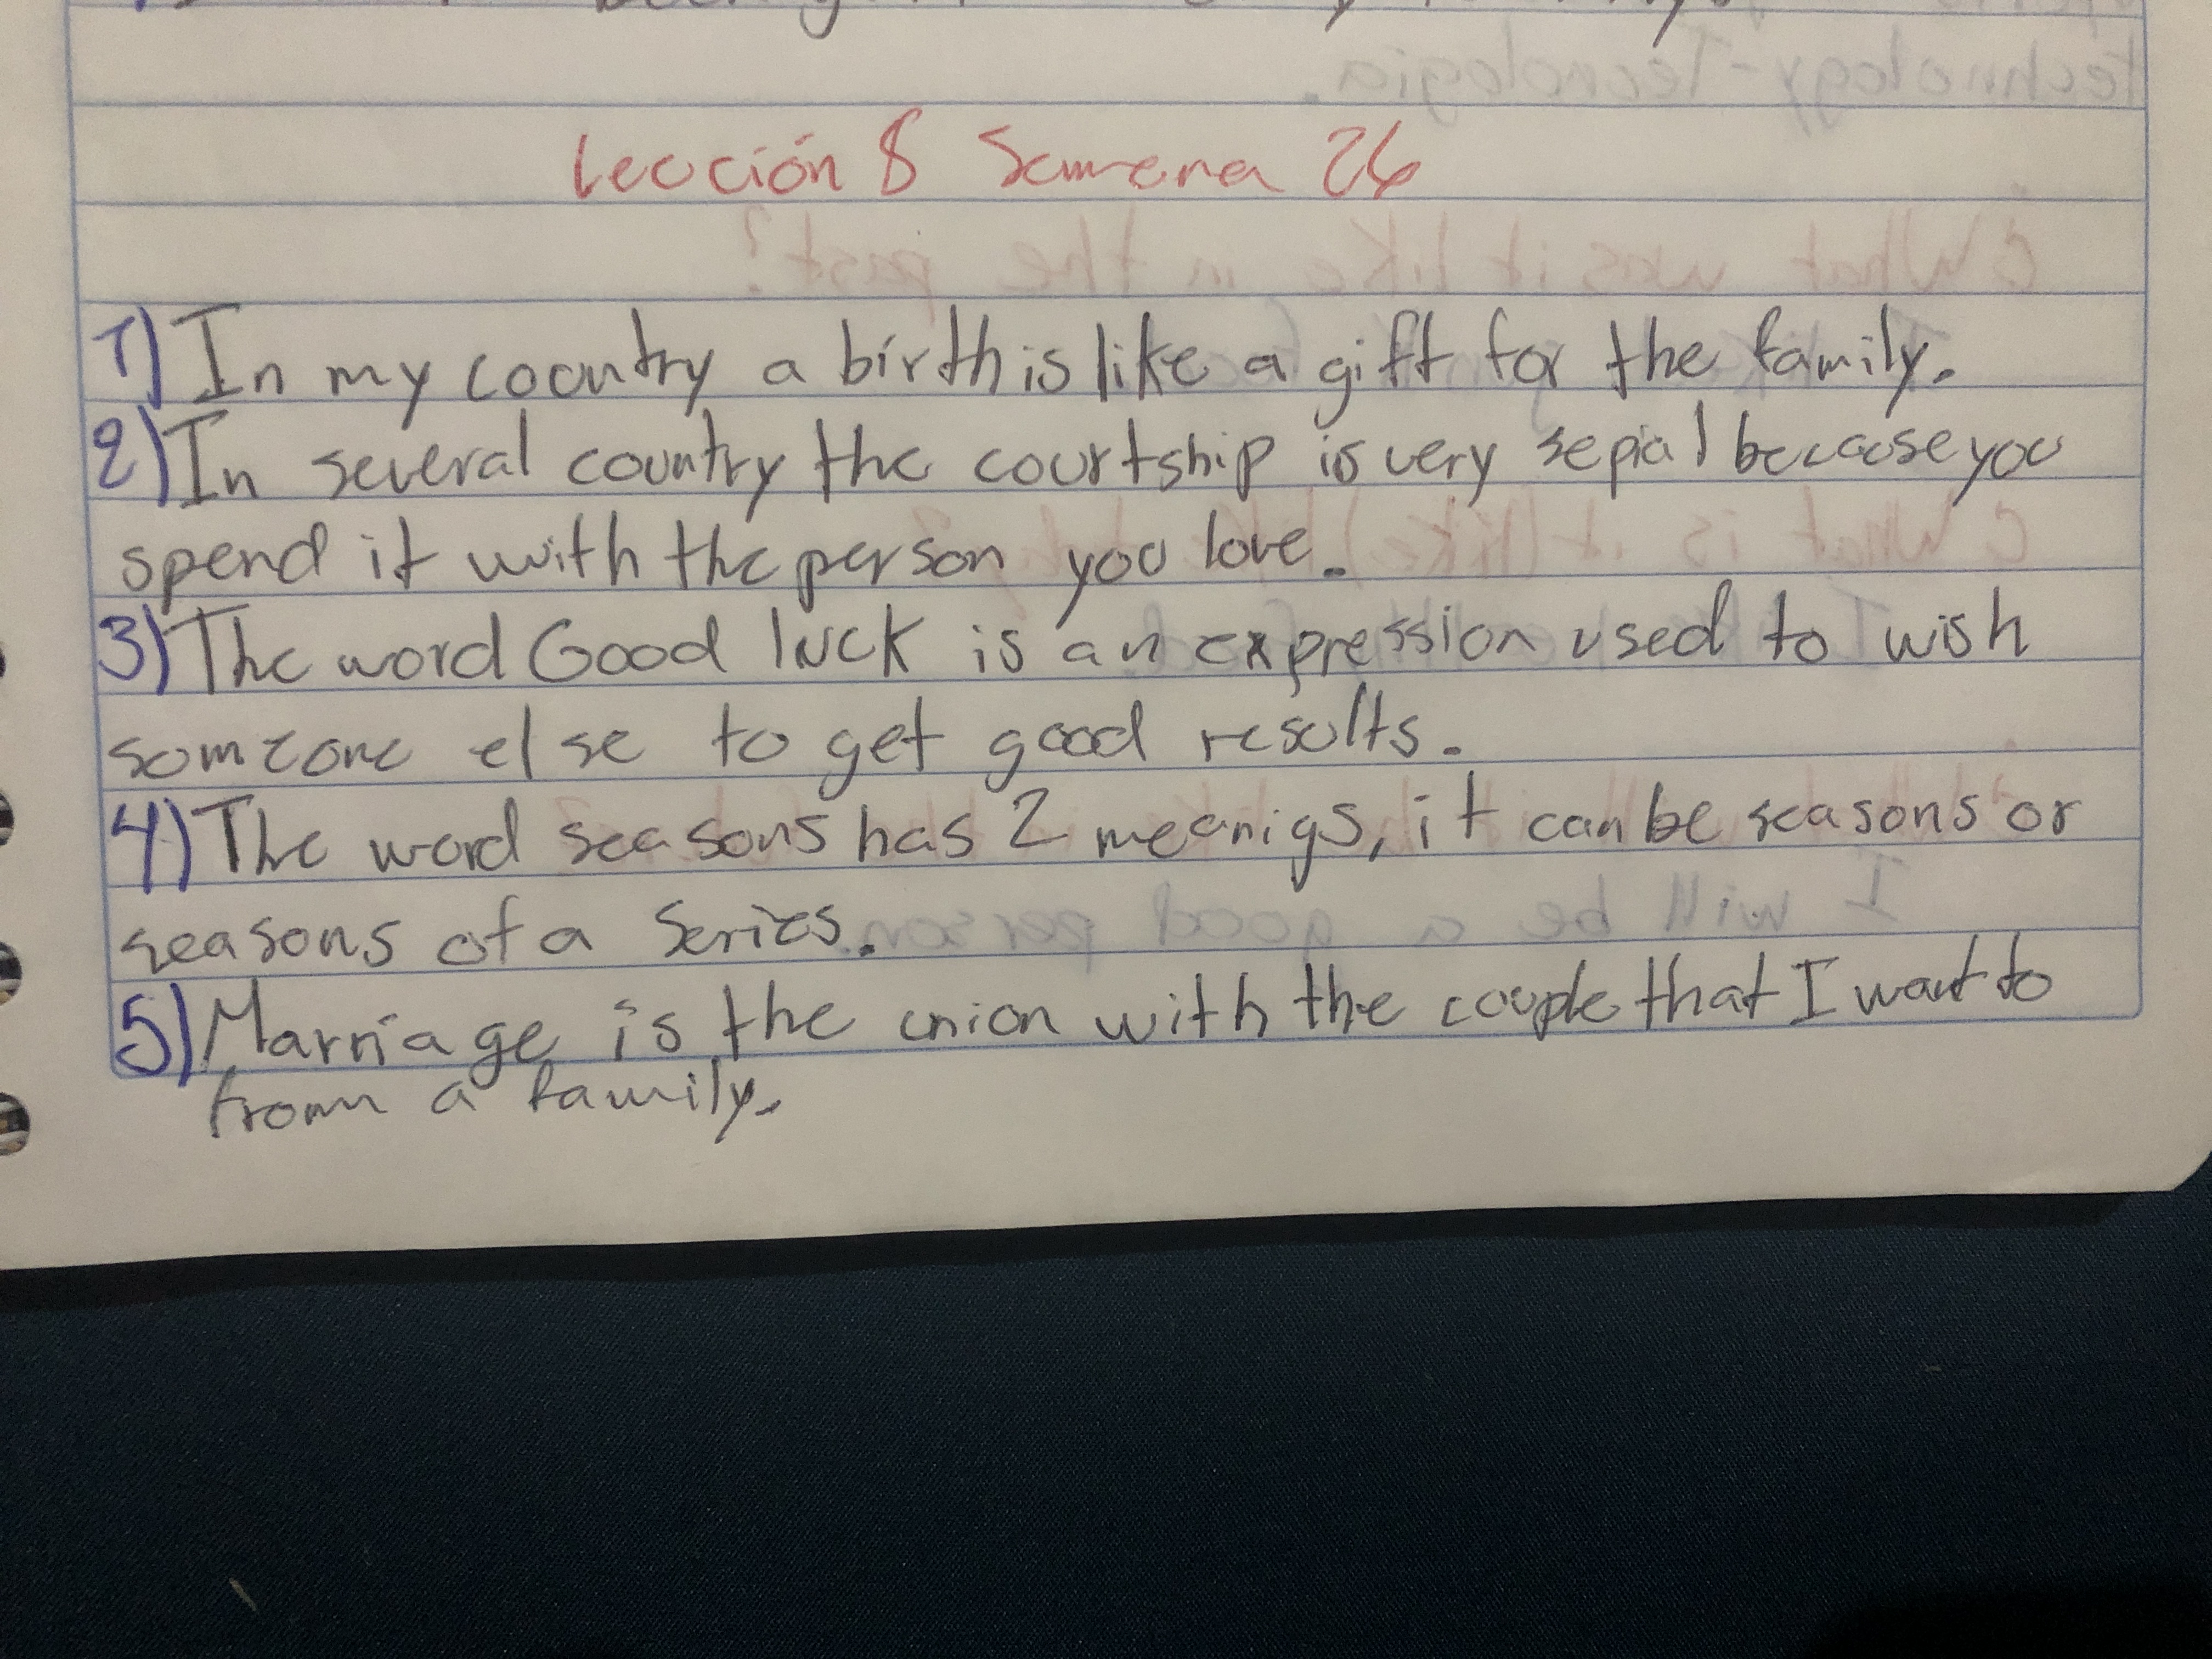 Lección 8 Semana 26
1) In my coontry a birth is like a gift for the family.
2) In several country the courtship is very sepial because you
spend it with the person you love.
3) The word Good luck is an expression used to wish
someone else to get good results.
4) The word seasons has 2 meanigs, it can be seasons or
seasons of a series.
5) Marriage is the union with the couple that I want to
from a family.